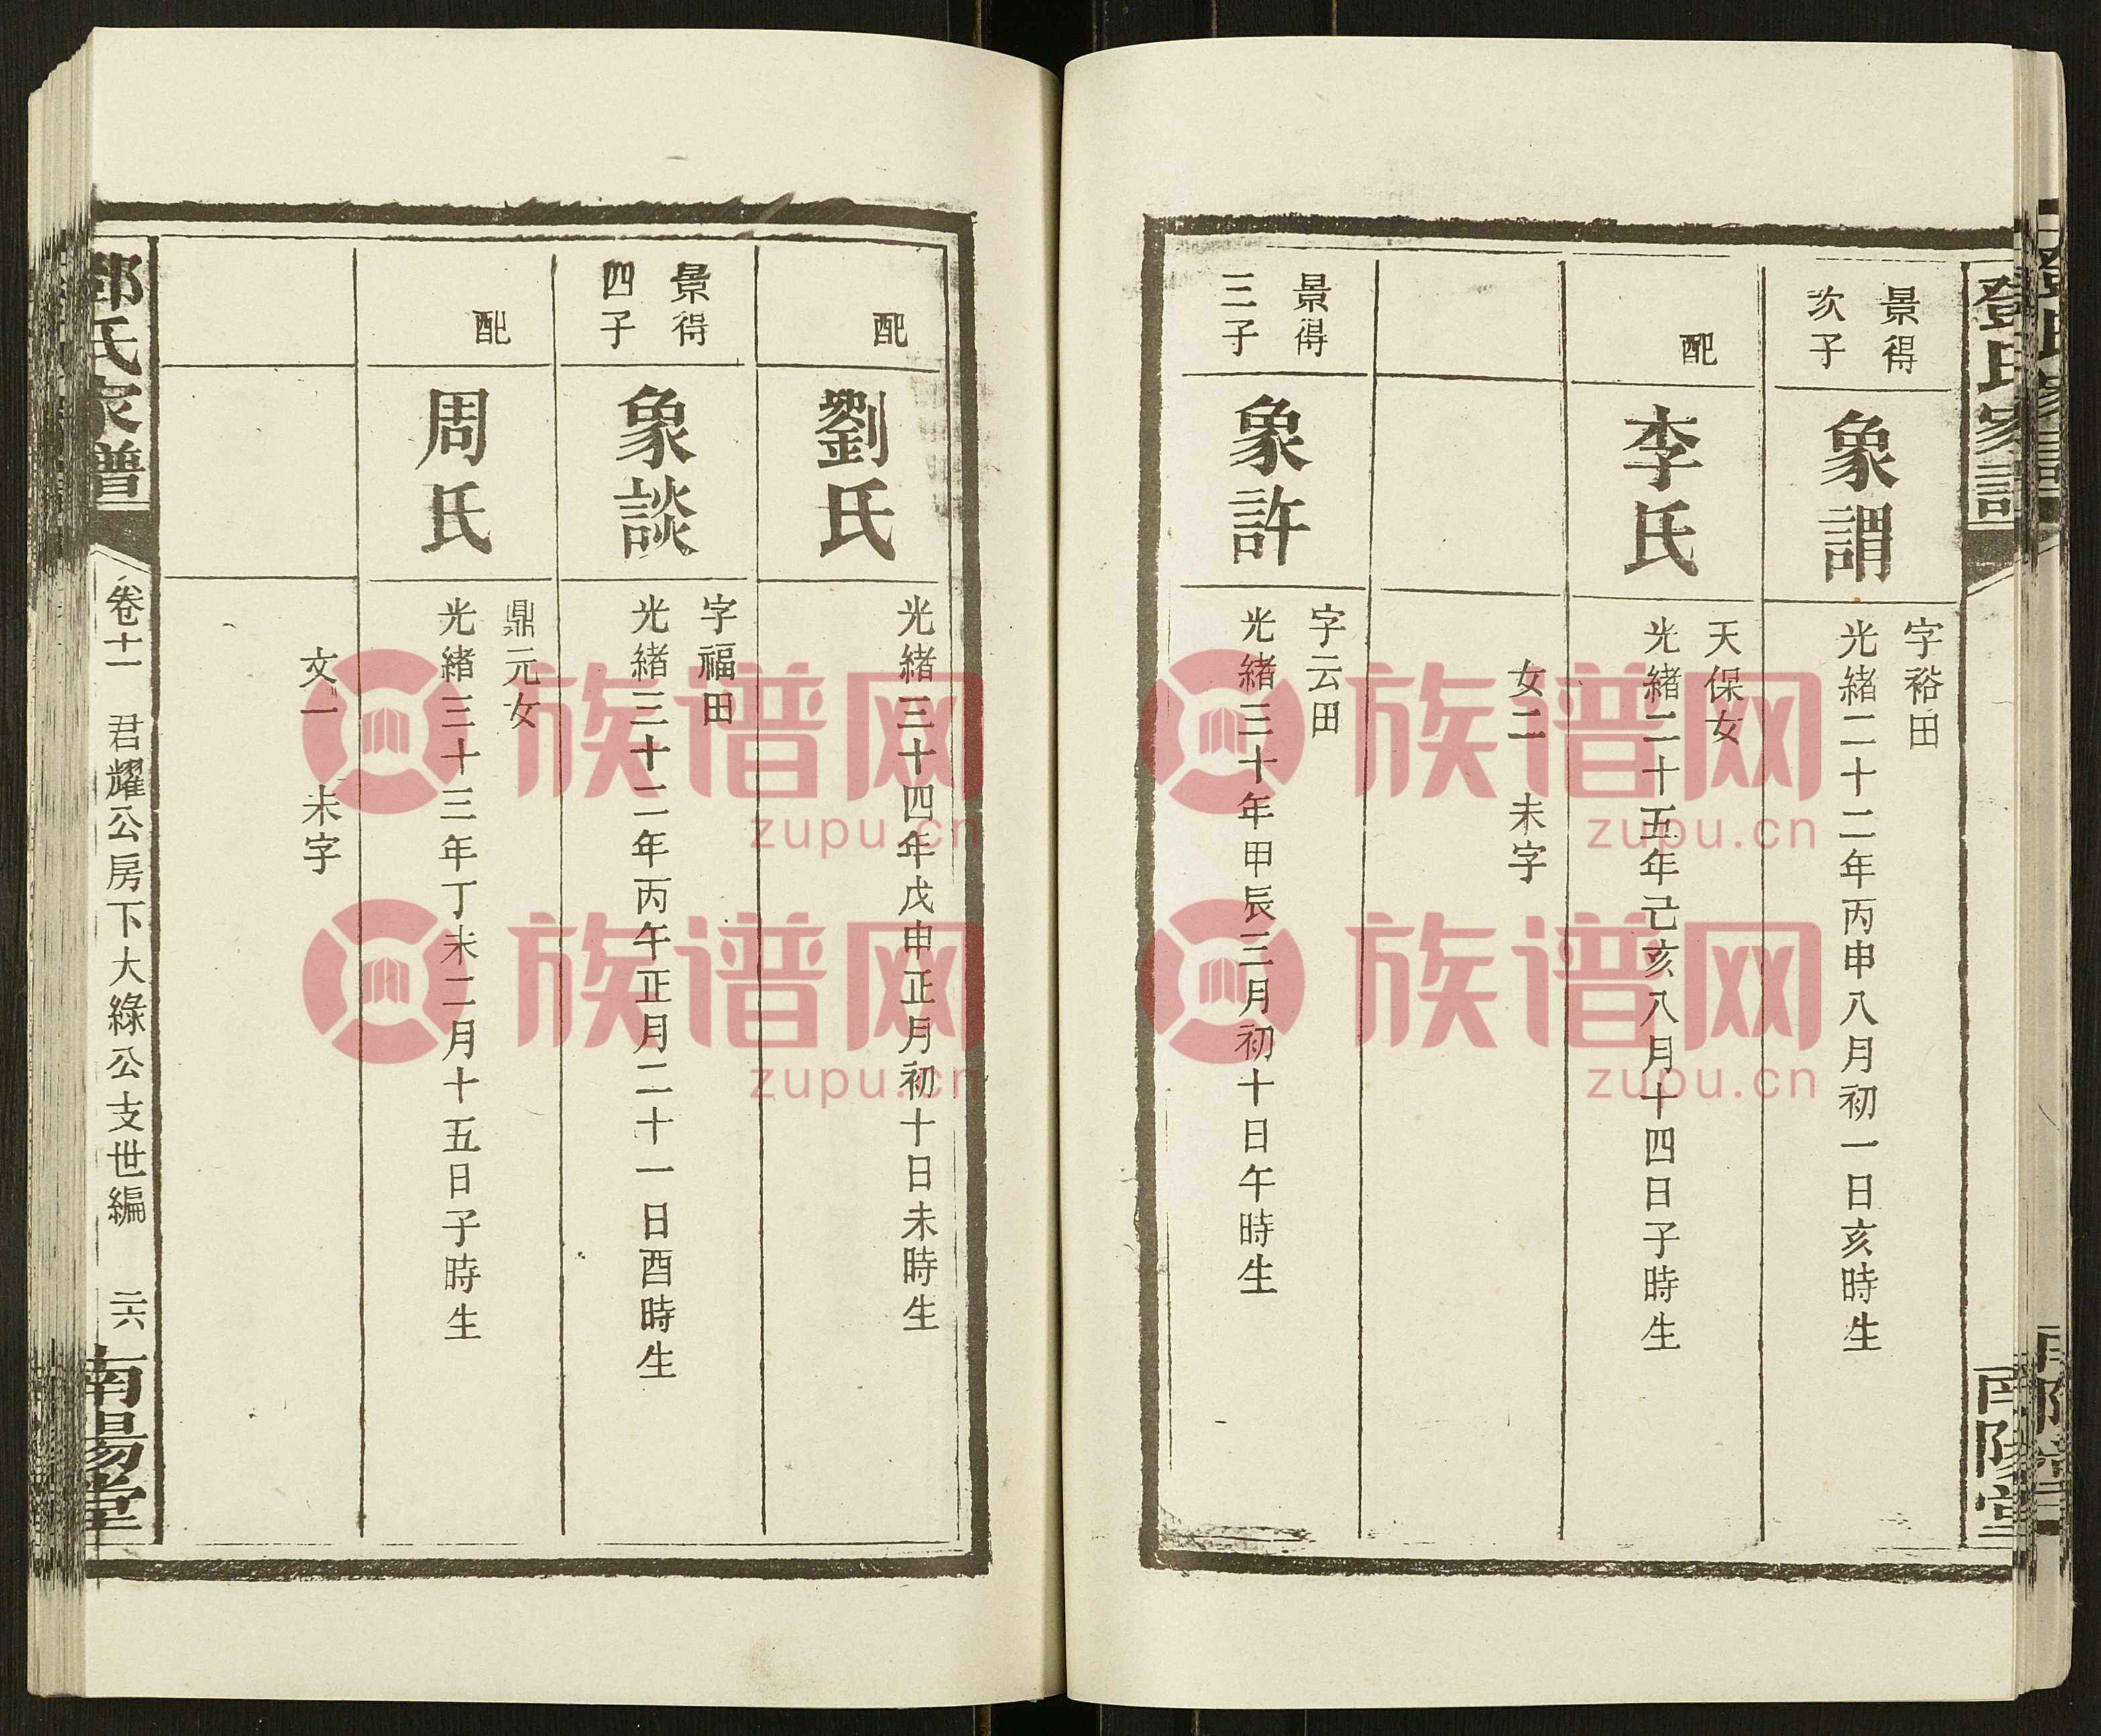 鄧氏家譜
南陽堂
景得
次子
象謂
字裕田
光緒二十二年丙申八月初一日亥時生
配
李氏
天保女
光緒二十五年己亥八月十四日子時生
女二 未字
景得
三子
象許
字云田
光緒三十年甲辰三月初十日午時生
配
劉氏
光緒三十四年戊申正月初十日未時生
景得
四子
象談
字福田
光緒三十二年丙午正月二十一日酉時生
配
周氏
鼎元女
光緒三十三年丁未二月十五日子時生
女一 未字
鄧氏家譜
卷十一 君耀公房下大綠公支世編 二六
南陽堂
族谱网
zupu.cn
族谱网
zupu.cn
族谱网
zupu.cn
族谱网
zupu.cn